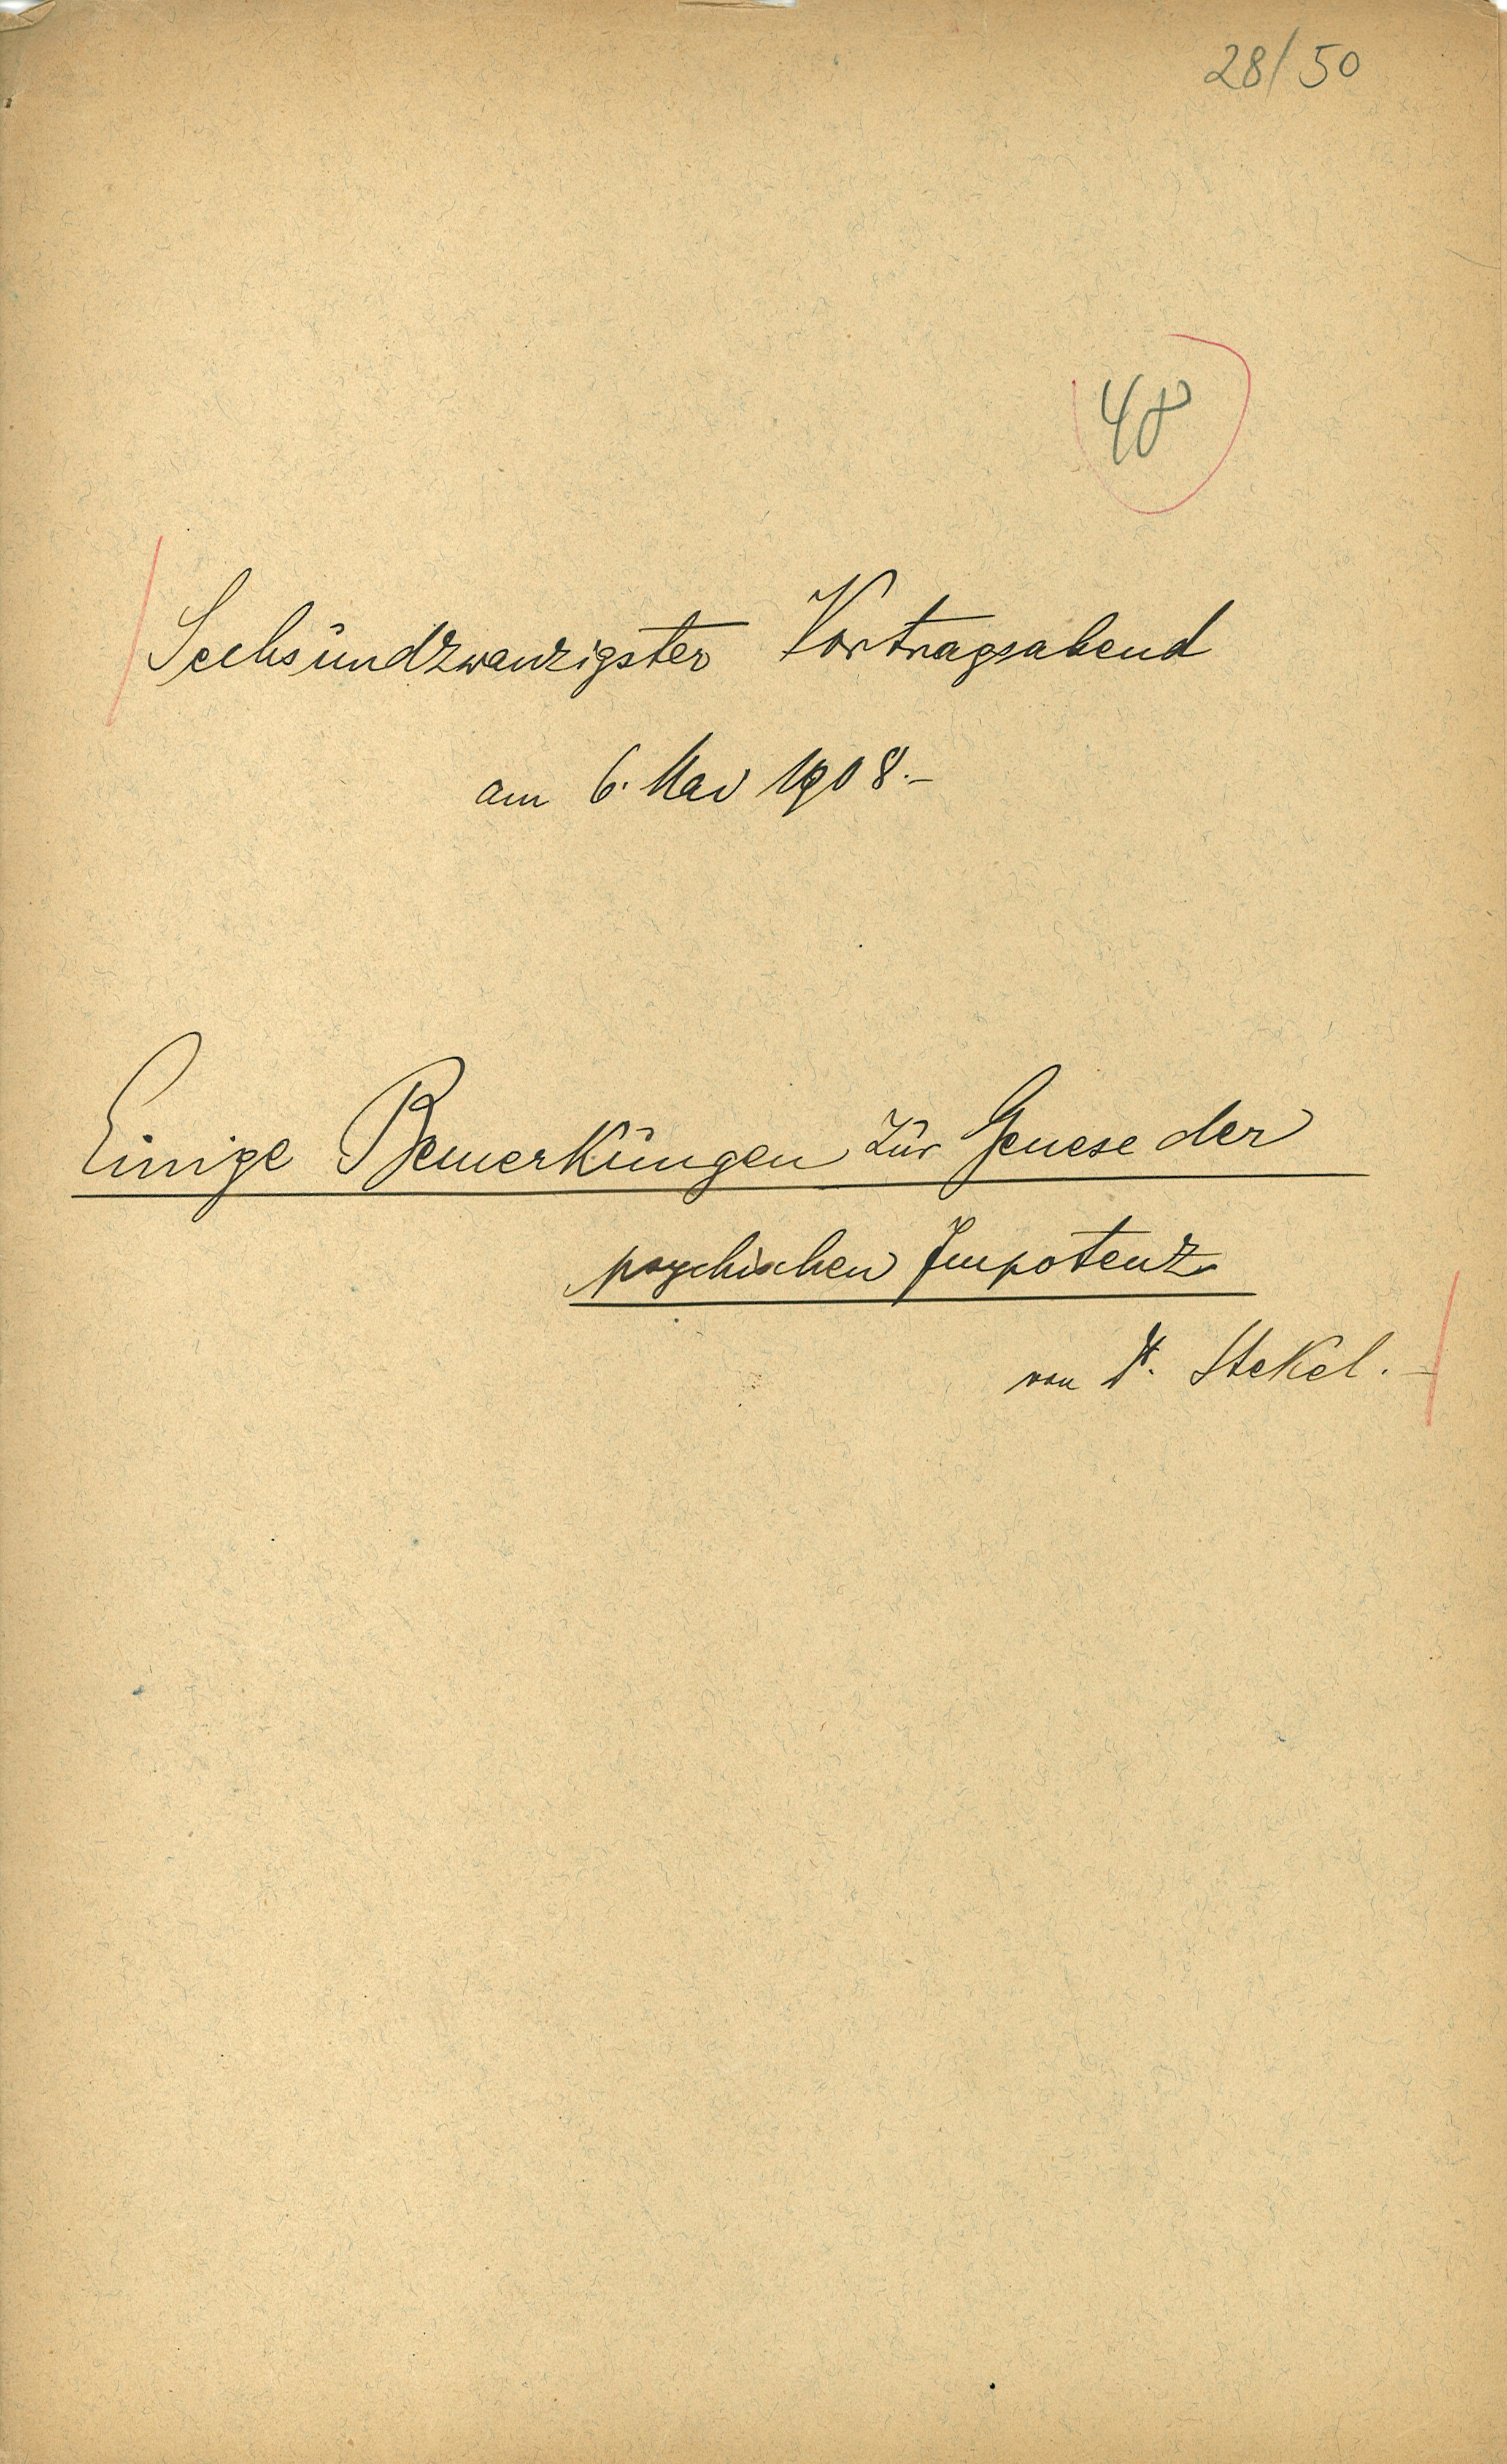 28/50
48
Sechsundzwanzigster Vortragsabend
am 6. Mai 1908.–
Einige Bemerkungen zur Genese der
psychischen Impotenz
von Dr. Stekel.–